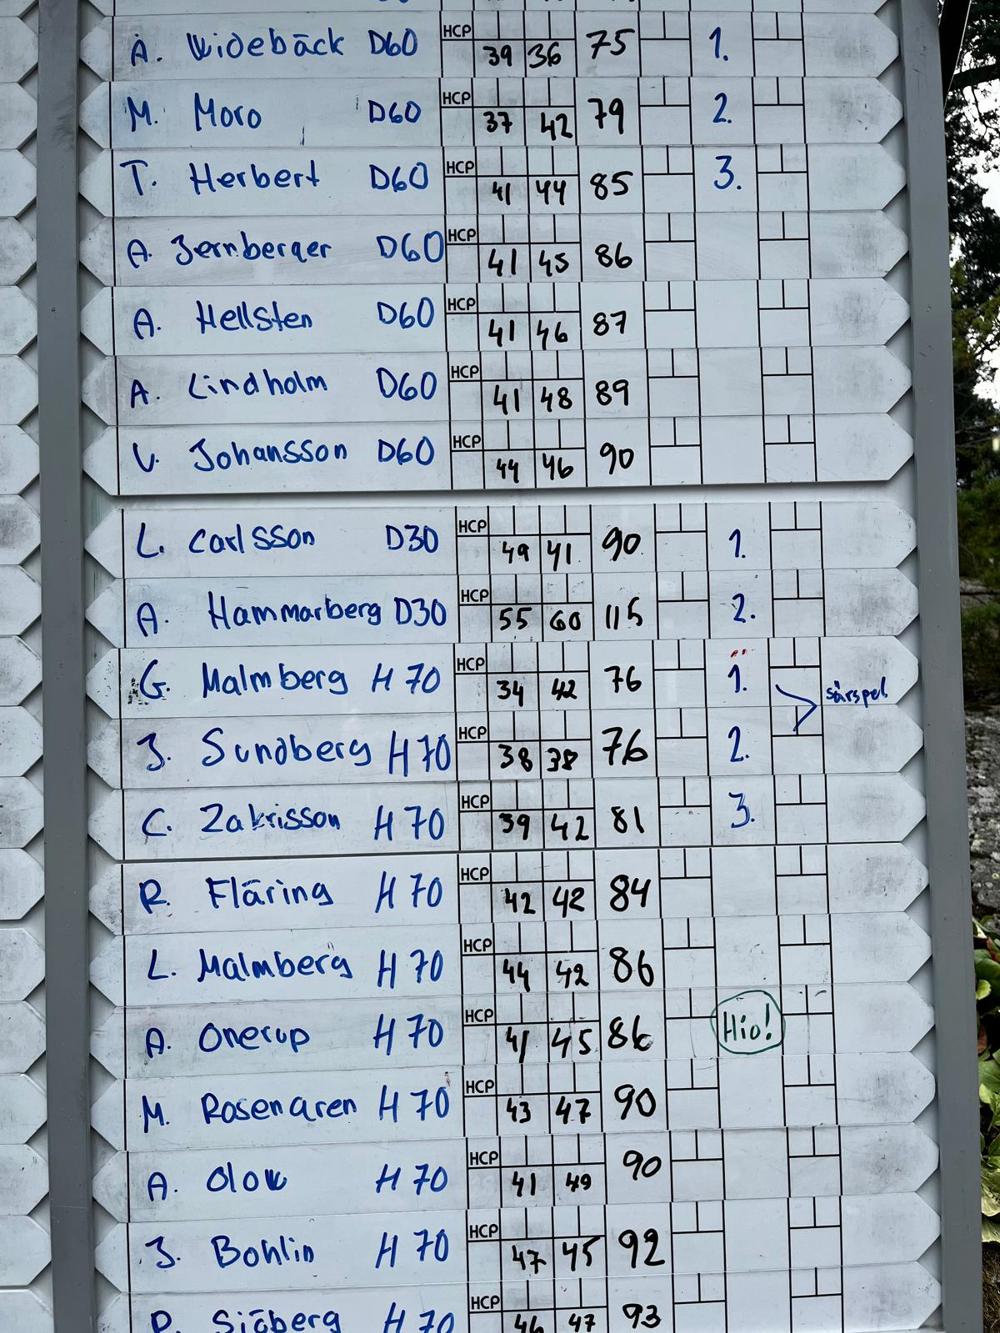 A. Widebäck D60 HCP 39 36 75 1.
M. Moro D60 HCP 37 42 79 2.
T. Herbert D60 HCP 41 44 85 3.
A. Jernberger D60 HCP 41 45 86
A. Hellsten D60 HCP 41 46 87
A. Lindholm D60 HCP 41 48 89
V. Johansson D60 HCP 44 46 90
L. Carlsson D30 HCP 49 41 90 1.
A. Hammarberg D30 HCP 55 60 115 2.
G. Malmberg H70 HCP 34 42 76 1.
särspel
J. Sundberg H70 HCP 38 38 76 2.
C. Zakrisson H70 HCP 39 42 81 3.
R. Fläring H70 HCP 42 42 84
L. Malmberg H70 HCP 44 42 86
A. Onerup H70 HCP 41 45 86 Hio!
M. Rosengren H70 HCP 43 47 90
A. Olow H70 HCP 41 49 90
J. Bohlin H70 HCP 47 45 92
Sjöberg H70 HCP 46 47 93